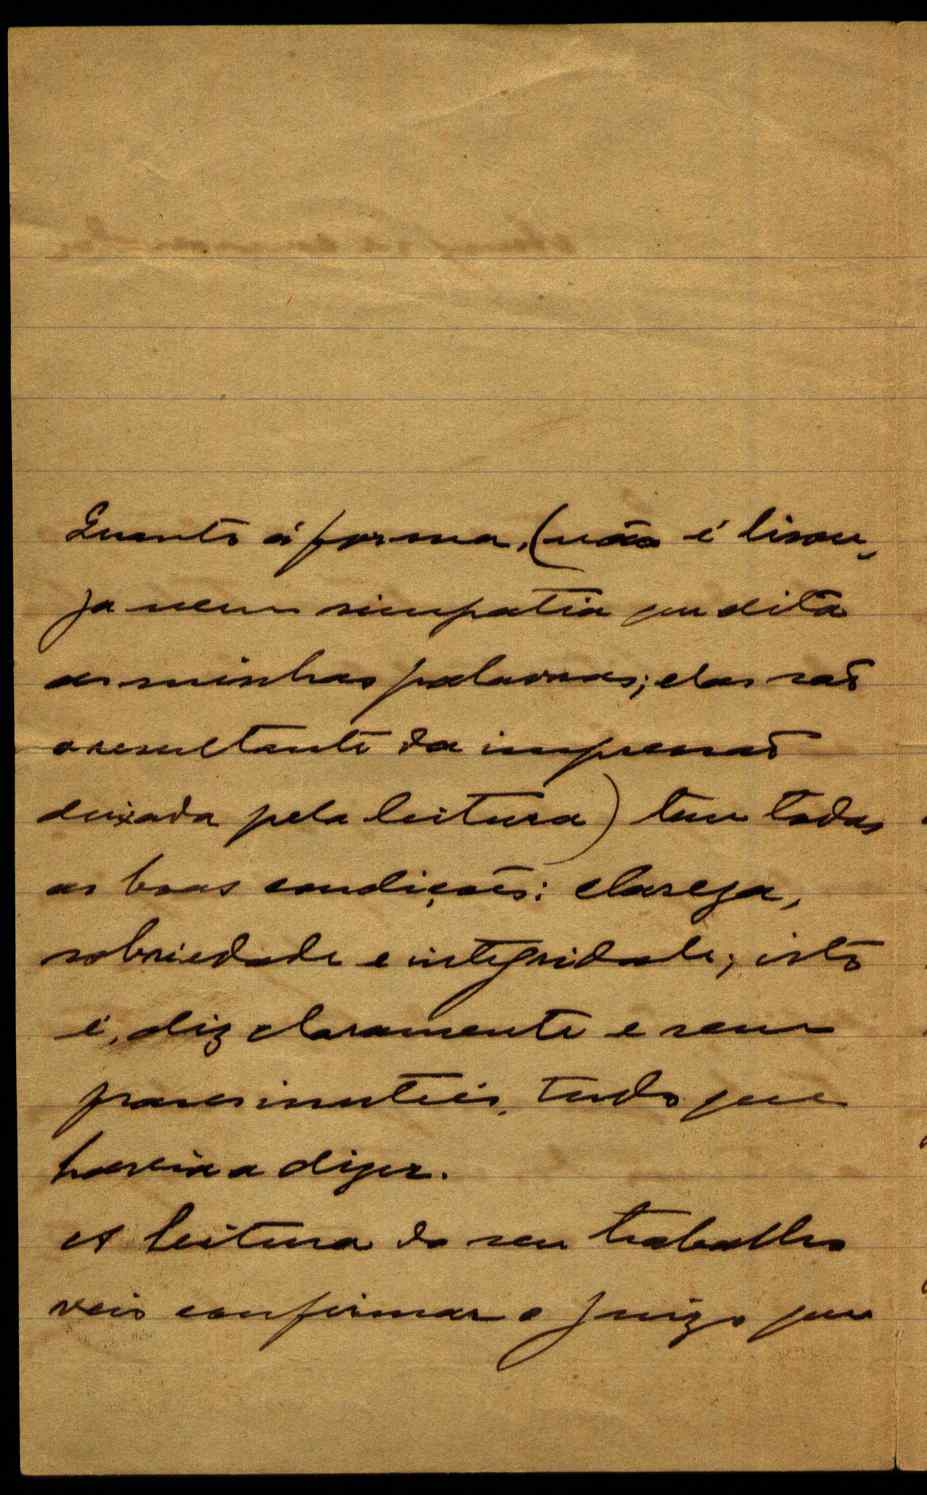 Quanto á forma, (não é lison-
ja nem simpatia que dita
as minhas palavras; elas são
a resultante da impressão
deixada pela leitura) tem todas
as boas condições: clareza,
sobriedade e integridade; isto
é, diz claramente e sem
frases inuteis, tudo que
haveria a dizer.
A leitura do seu trabalho
veio confirmar o juizo que